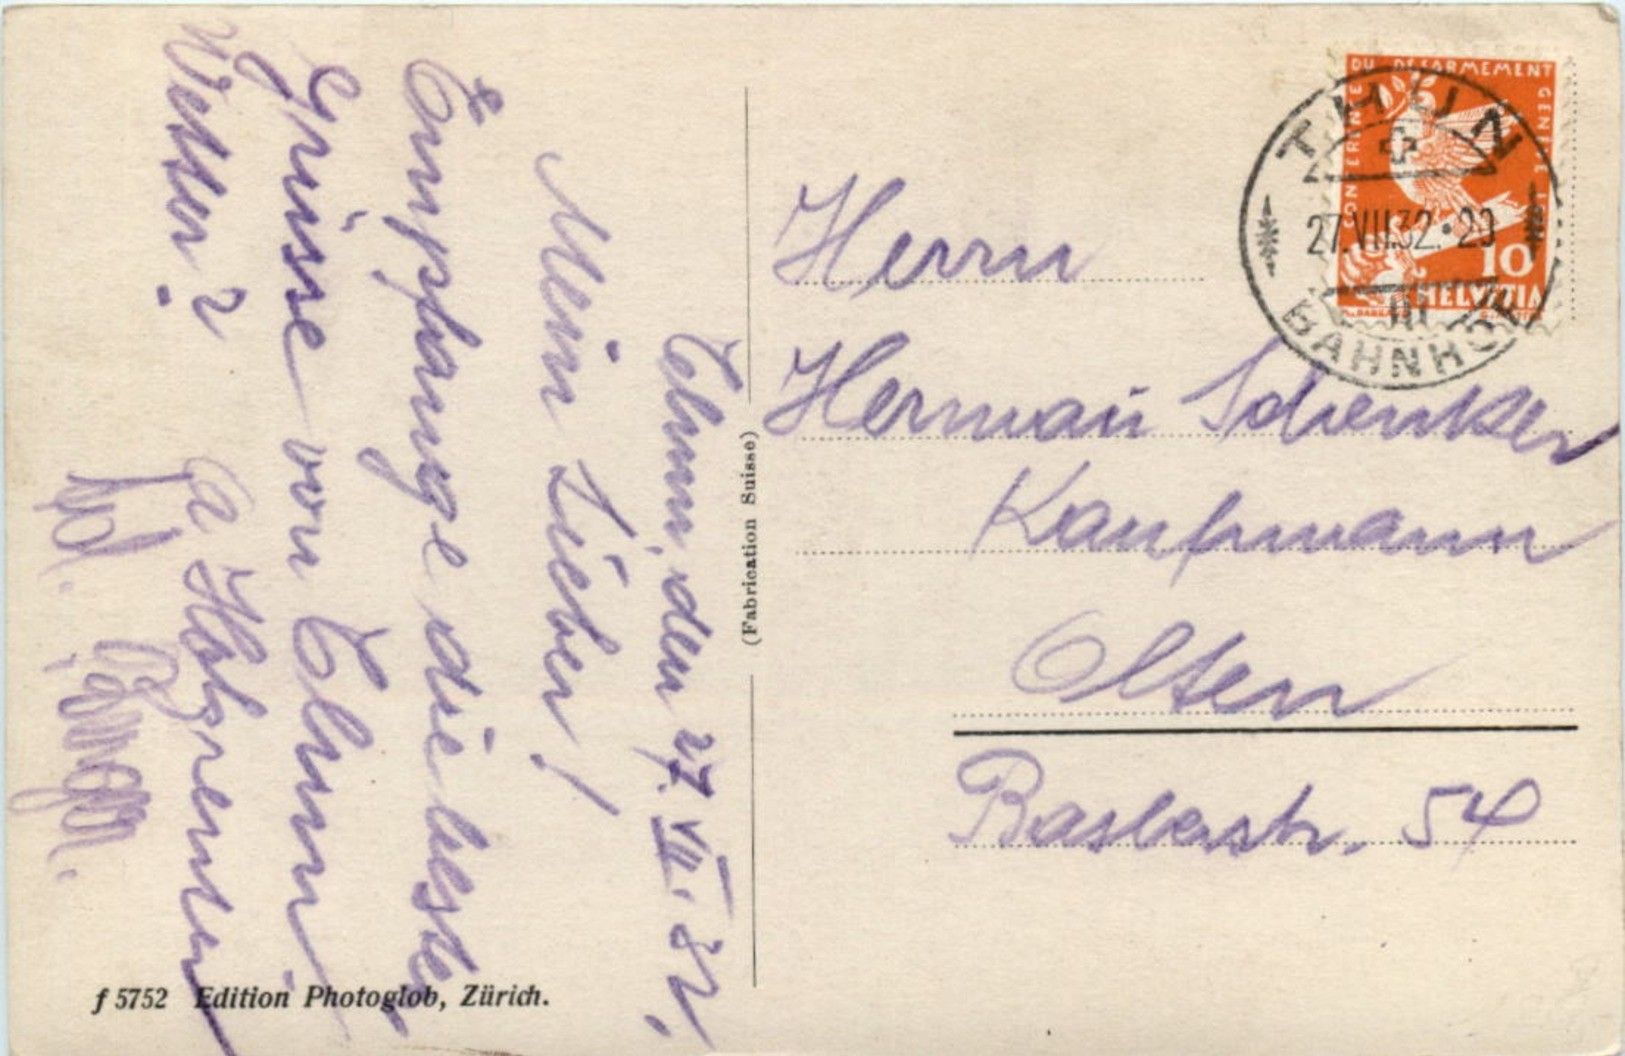 Thun, den 27. VII. 32.
Mein Lieber!
Empfange die besten
Grüsse von Thun
Wetter?
Herrn
Herman Schenker
Kaufmann
Olten
Baslerstr. 54
(Fabrication Suisse)
f 5752 Edition Photoglob, Zürich.
THUN
27.VII.32.-20
BAHNHOF
CONFERENCE DU DESARMEMENT GENEVE
10
HELVETIA